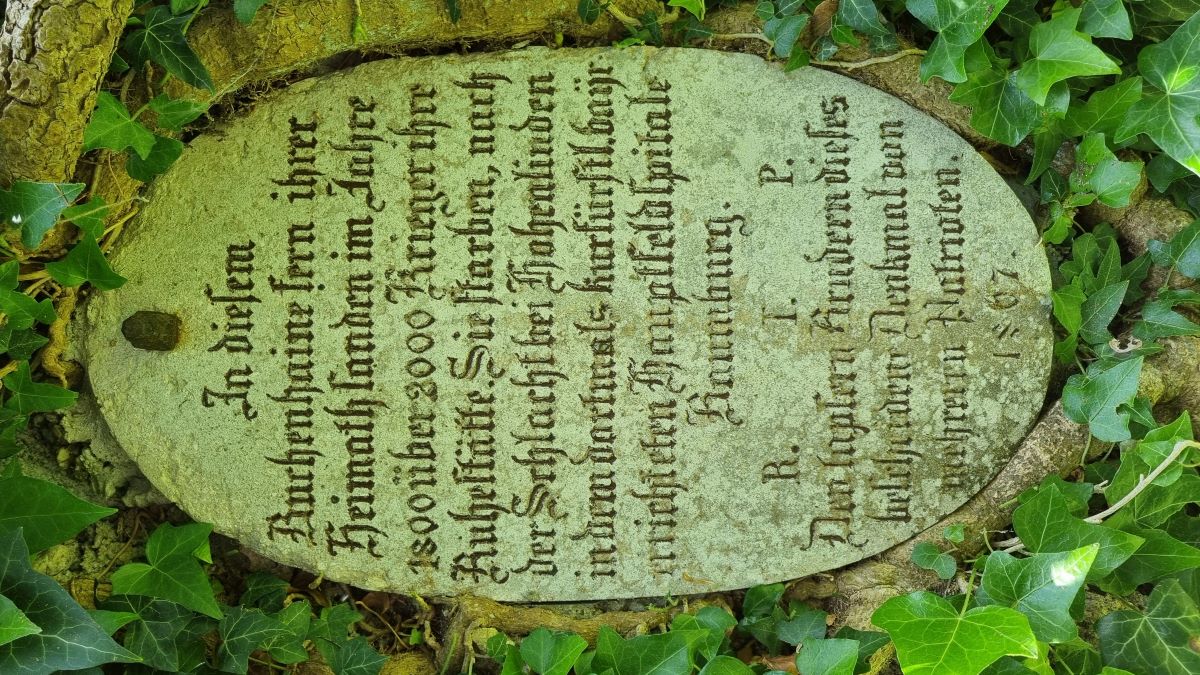 In diesem
Buchenhaine fern ihrer
Heimath fanden im Jahre
1800 über 2000 Krieger ihre
Ruhestätte. Sie starben, nach
der Schlacht bei Hohenlinden
in dem dortmals kurfürstl. bayr.
errichteten Hauptfeldspitale
Baumburg.
R. I. P.
Den tapfern Brüdern dieses
bescheiden Denkmal von
mehrern Patrioten.
1867